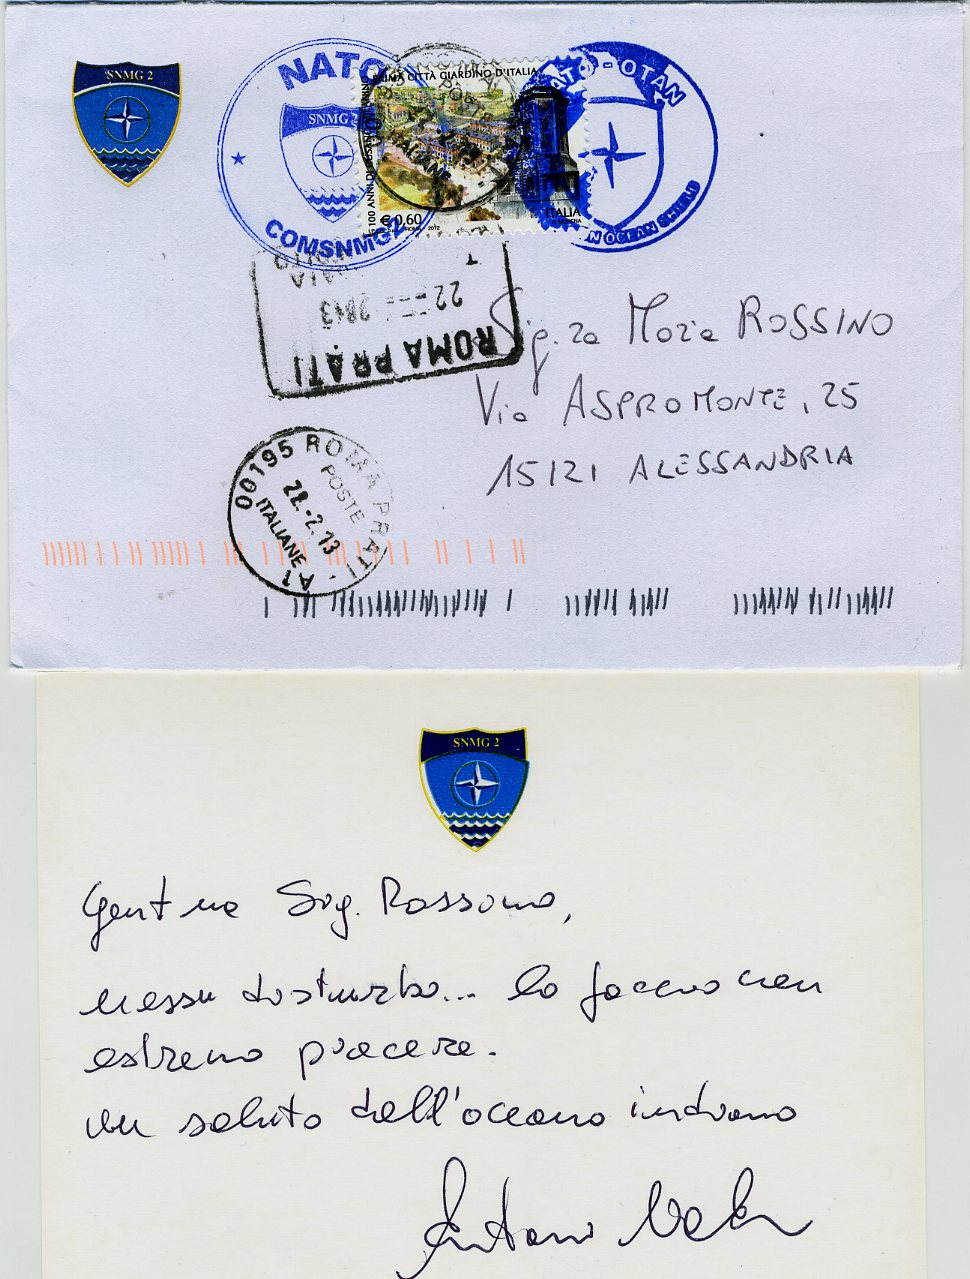 SNMG 2
NATO
SNMG 2
COMSNMG2
ROMA CITTÀ GIARDINO D'ITALIA
100 ANNI DI
€ 0,60
2012
ITALIA
NATO - OTAN
OCEAN SHIELD
22
ROMA PRATI
Sig.ra Maria ROSSINO
Via ASPROMONTE, 25
15121 ALESSANDRIA
00195 ROMA PRATI - A1
POSTE
22.-2.13
ITALIANE
SNMG 2
Gent.ma Sig. Rossino,
nessun disturbo... lo faccio con
estremo piacere.
un saluto dall'oceano indiano
Antonio